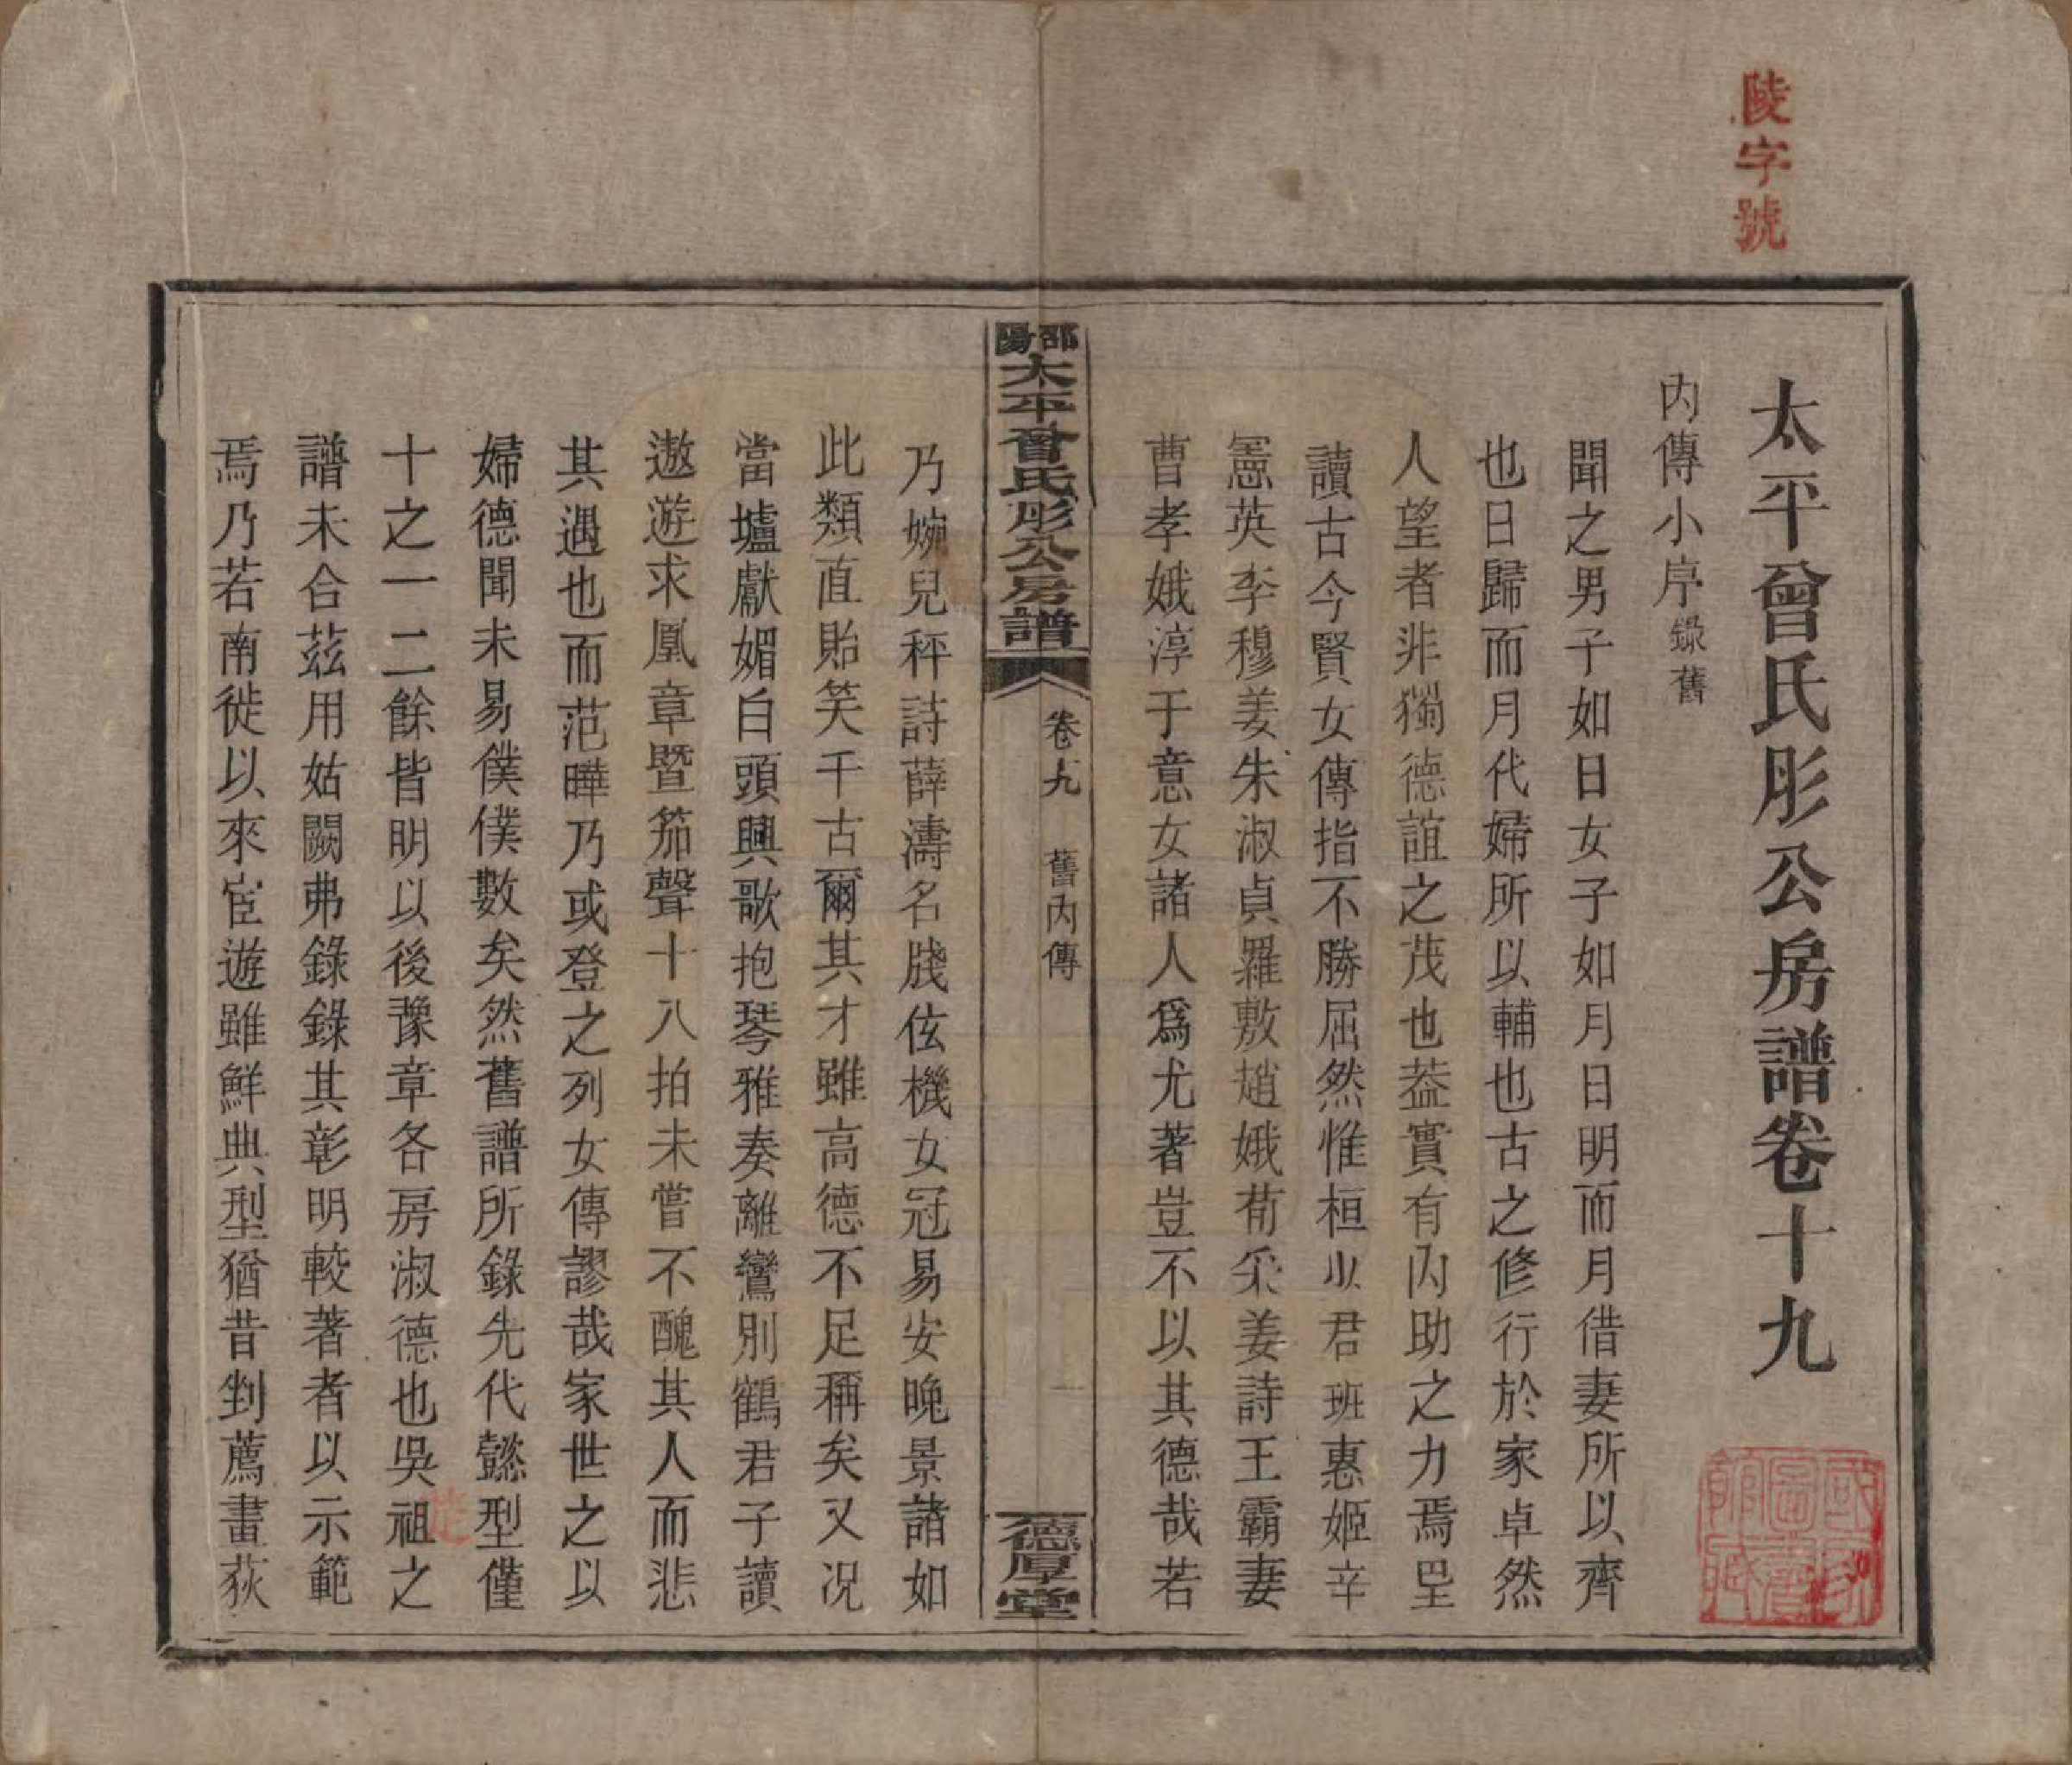 陵字號
太平曾氏彤公房譜卷十九
內傳小序錄舊
聞之男子如日女子如月日明而月借妻所以齊
也日歸而月代婦所以輔也古之修行於家卓然
人望者非獨德誼之茂也葢實有內助之力焉㘴
讀古今賢女傳指不勝屈然惟桓少君班惠姬辛
憲英李穆姜朱淑貞羅敷趙娥荀采姜詩王霸妻
曹孝娥淳于意女諸人爲尤著豈不以其德哉若
邵陽太平曾氏彤公房譜
卷十九
舊內傳
一
德厚堂
乃婉兒秤詩薛濤名牋伭機女冠易安晚景諸如
此類直貽笑千古爾其才雖高德不足稱矣又况
當壚獻媚白頭興歌抱琴雅奏離鸞別鶴君子讀
遨遊求凰章暨笳聲十八拍未嘗不醜其人而悲
其遇也而范曄乃或登之列女傳謬哉家世之以
婦德聞未易僕僕數矣然舊譜所錄先代懿型僅
十之一二餘皆明以後豫章各房淑德也吳祖之
譜未合茲用姑闕弗錄錄其彰明較著者以示範
焉乃若南徙以來宦遊雖鮮典型猶昔剉薦畫荻